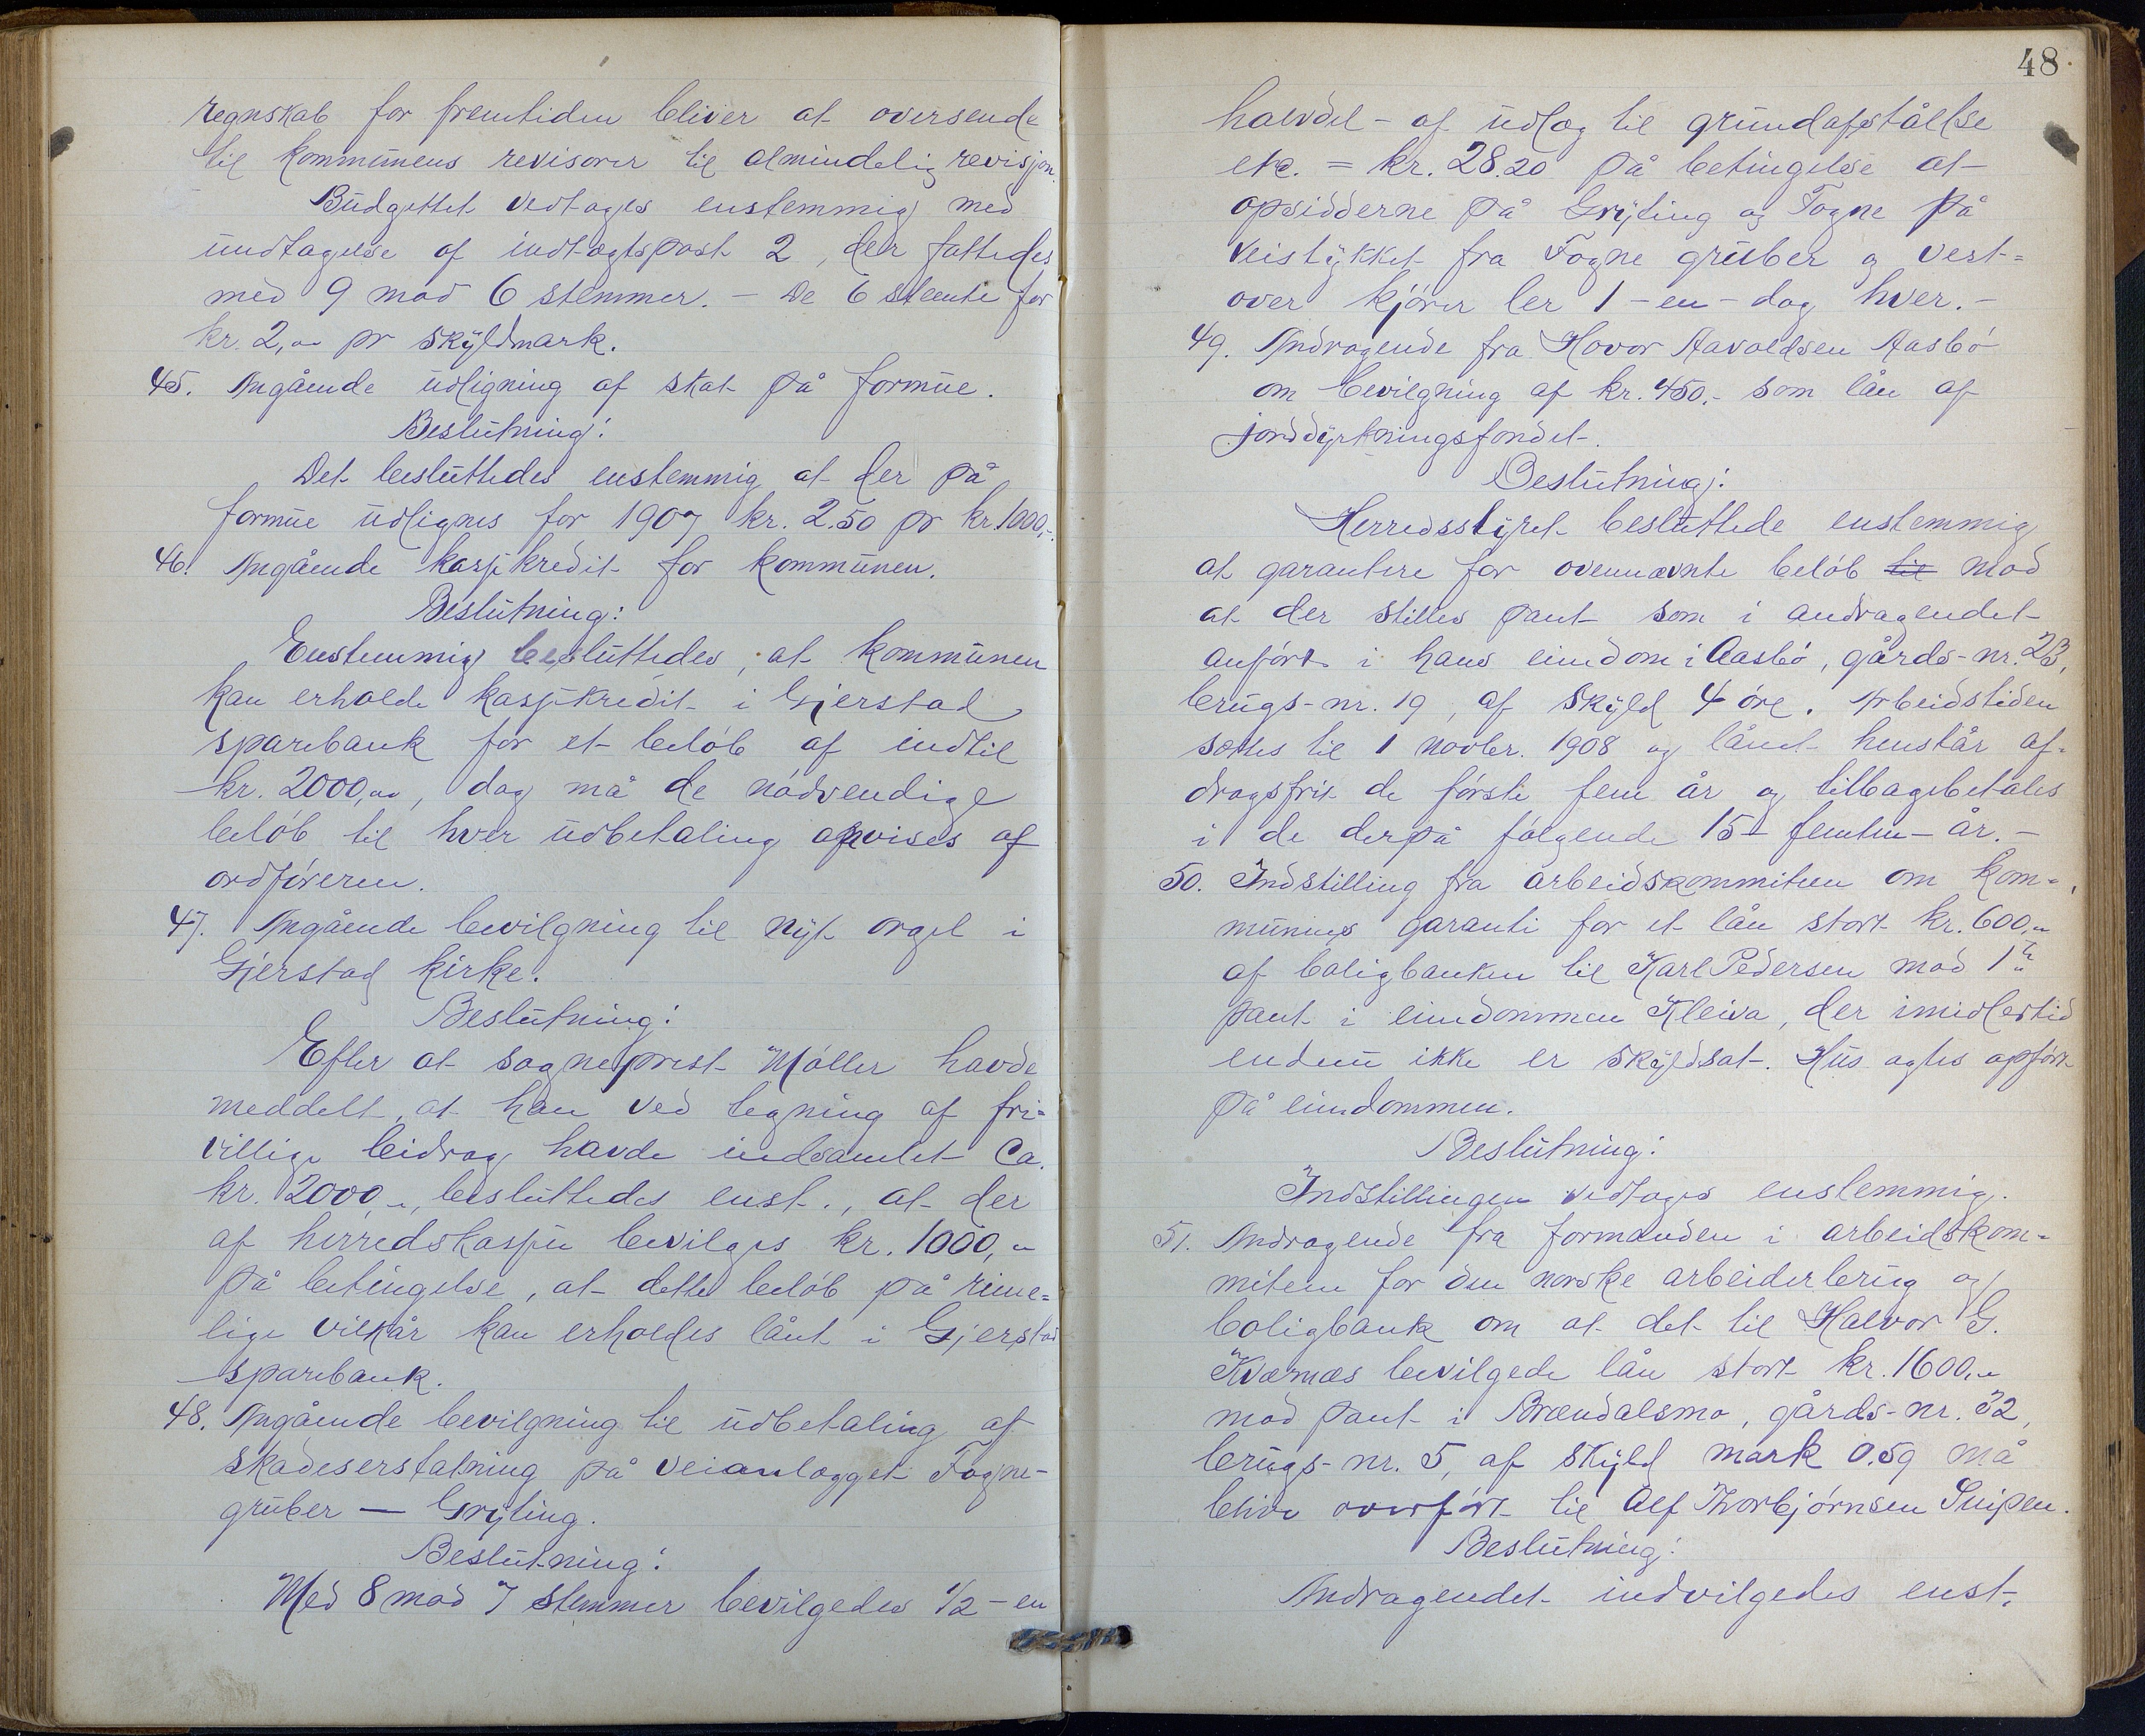 regnskab for fremtiden bliver at oversende
til kommunens revisorer til almindelig revisjon.
Budgettet vedtages enstemmig med
undtagelse af indtægtspost 2, der fattedes
med 9 mod 6 stemmer. – De 6 stemte for
kr. 2,00 pr skyldmark.
45. Angående udligning af skat på formue.
Beslutning:
Det besluttedes enstemmig at der på
formue udlignes for 1907 kr. 2.50 pr kr. 1000,-.
46. Angående kassekredit for kommunen.
Beslutning:
Enstemmig besluttedes, at kommunen
kan erholde kassekredit i Gjerstad
sparebank for et beløb af indtil
kr. 2000,00, dog må de nødvendige
beløb til hver udbetaling anvises af
ordføreren.
47. Angående bevilgning til nyt orgel i
Gjerstad kirke.
Beslutning:
Efter at sogneprest Møller havde
meddelt, at han ved tegning af fri-
villige bidrag havde indsamlet ca.
kr. 2000,-, besluttedes enst., at der
af herredskassen bevilges kr. 1000,-
på betingelse, at dette beløb på rime-
lige vilkår kan erholdes lånt i Gjerstad
sparebank.
48. Angående bevilgning til udbetaling af
skadeserstatning på veianlægget Fogne-
gruber — Gryting.
Beslutning:
Med 8 mod 7 stemmer bevilgedes 1/2 – en
48.
halvdel – af udlæg til grundafståelse
etc. = kr. 28.20 på betingelse at
opsidderne på Gryting og Fogne på
veistykket fra Fogne gruber og vest-
over kjører ler 1 – en – dag hver. –
49. Andragende fra Hovor Aavaldsen Aasbø
om bevilgning af kr. 450.- som lån af
jorddyrkningsfondet.
Beslutning:
Herredsstyret besluttede enstemmig
at garantere for ovennævnte beløb til mod
at der stilles pant som i andragendet
anført i hans eiendom i Aasbø, gårds-nr. 23,
brugs-nr. 19, af skyld 4 øre. Arbeidstiden
sættes til 1 novbr. 1908 og lånet henstår af-
dragsfrit de første fem år og tilbagebetales
i de derpå følgende 15 – femten – år. –
50. Indstilling fra arbeidskommiteen om kom-
munens garanti for et lån stort kr. 600,-
af boligbanken til Karl Pedersen mod 1ste
pant i eiendommen Kleiva, der imidlertid
endnu ikke er skyldsat. Hus agtes opført
på eiendommen.
Beslutning:
Indstillingen vedtages enstemmig.
51. Andragende fra formanden i arbeidskom-
miteen for den norske arbeiderbrug og
boligbank om at det til Halvor G.
Kværnæs bevilgede lån stort kr. 1600,-
mod pant i Brændalsmo, gårds-nr. 32,
brugs-nr. 5, af skyld mark 0.59 må
blive overført til Alf Thorbjørnsen Snipen.
Beslutning:
Andragendet indvilgedes enst.